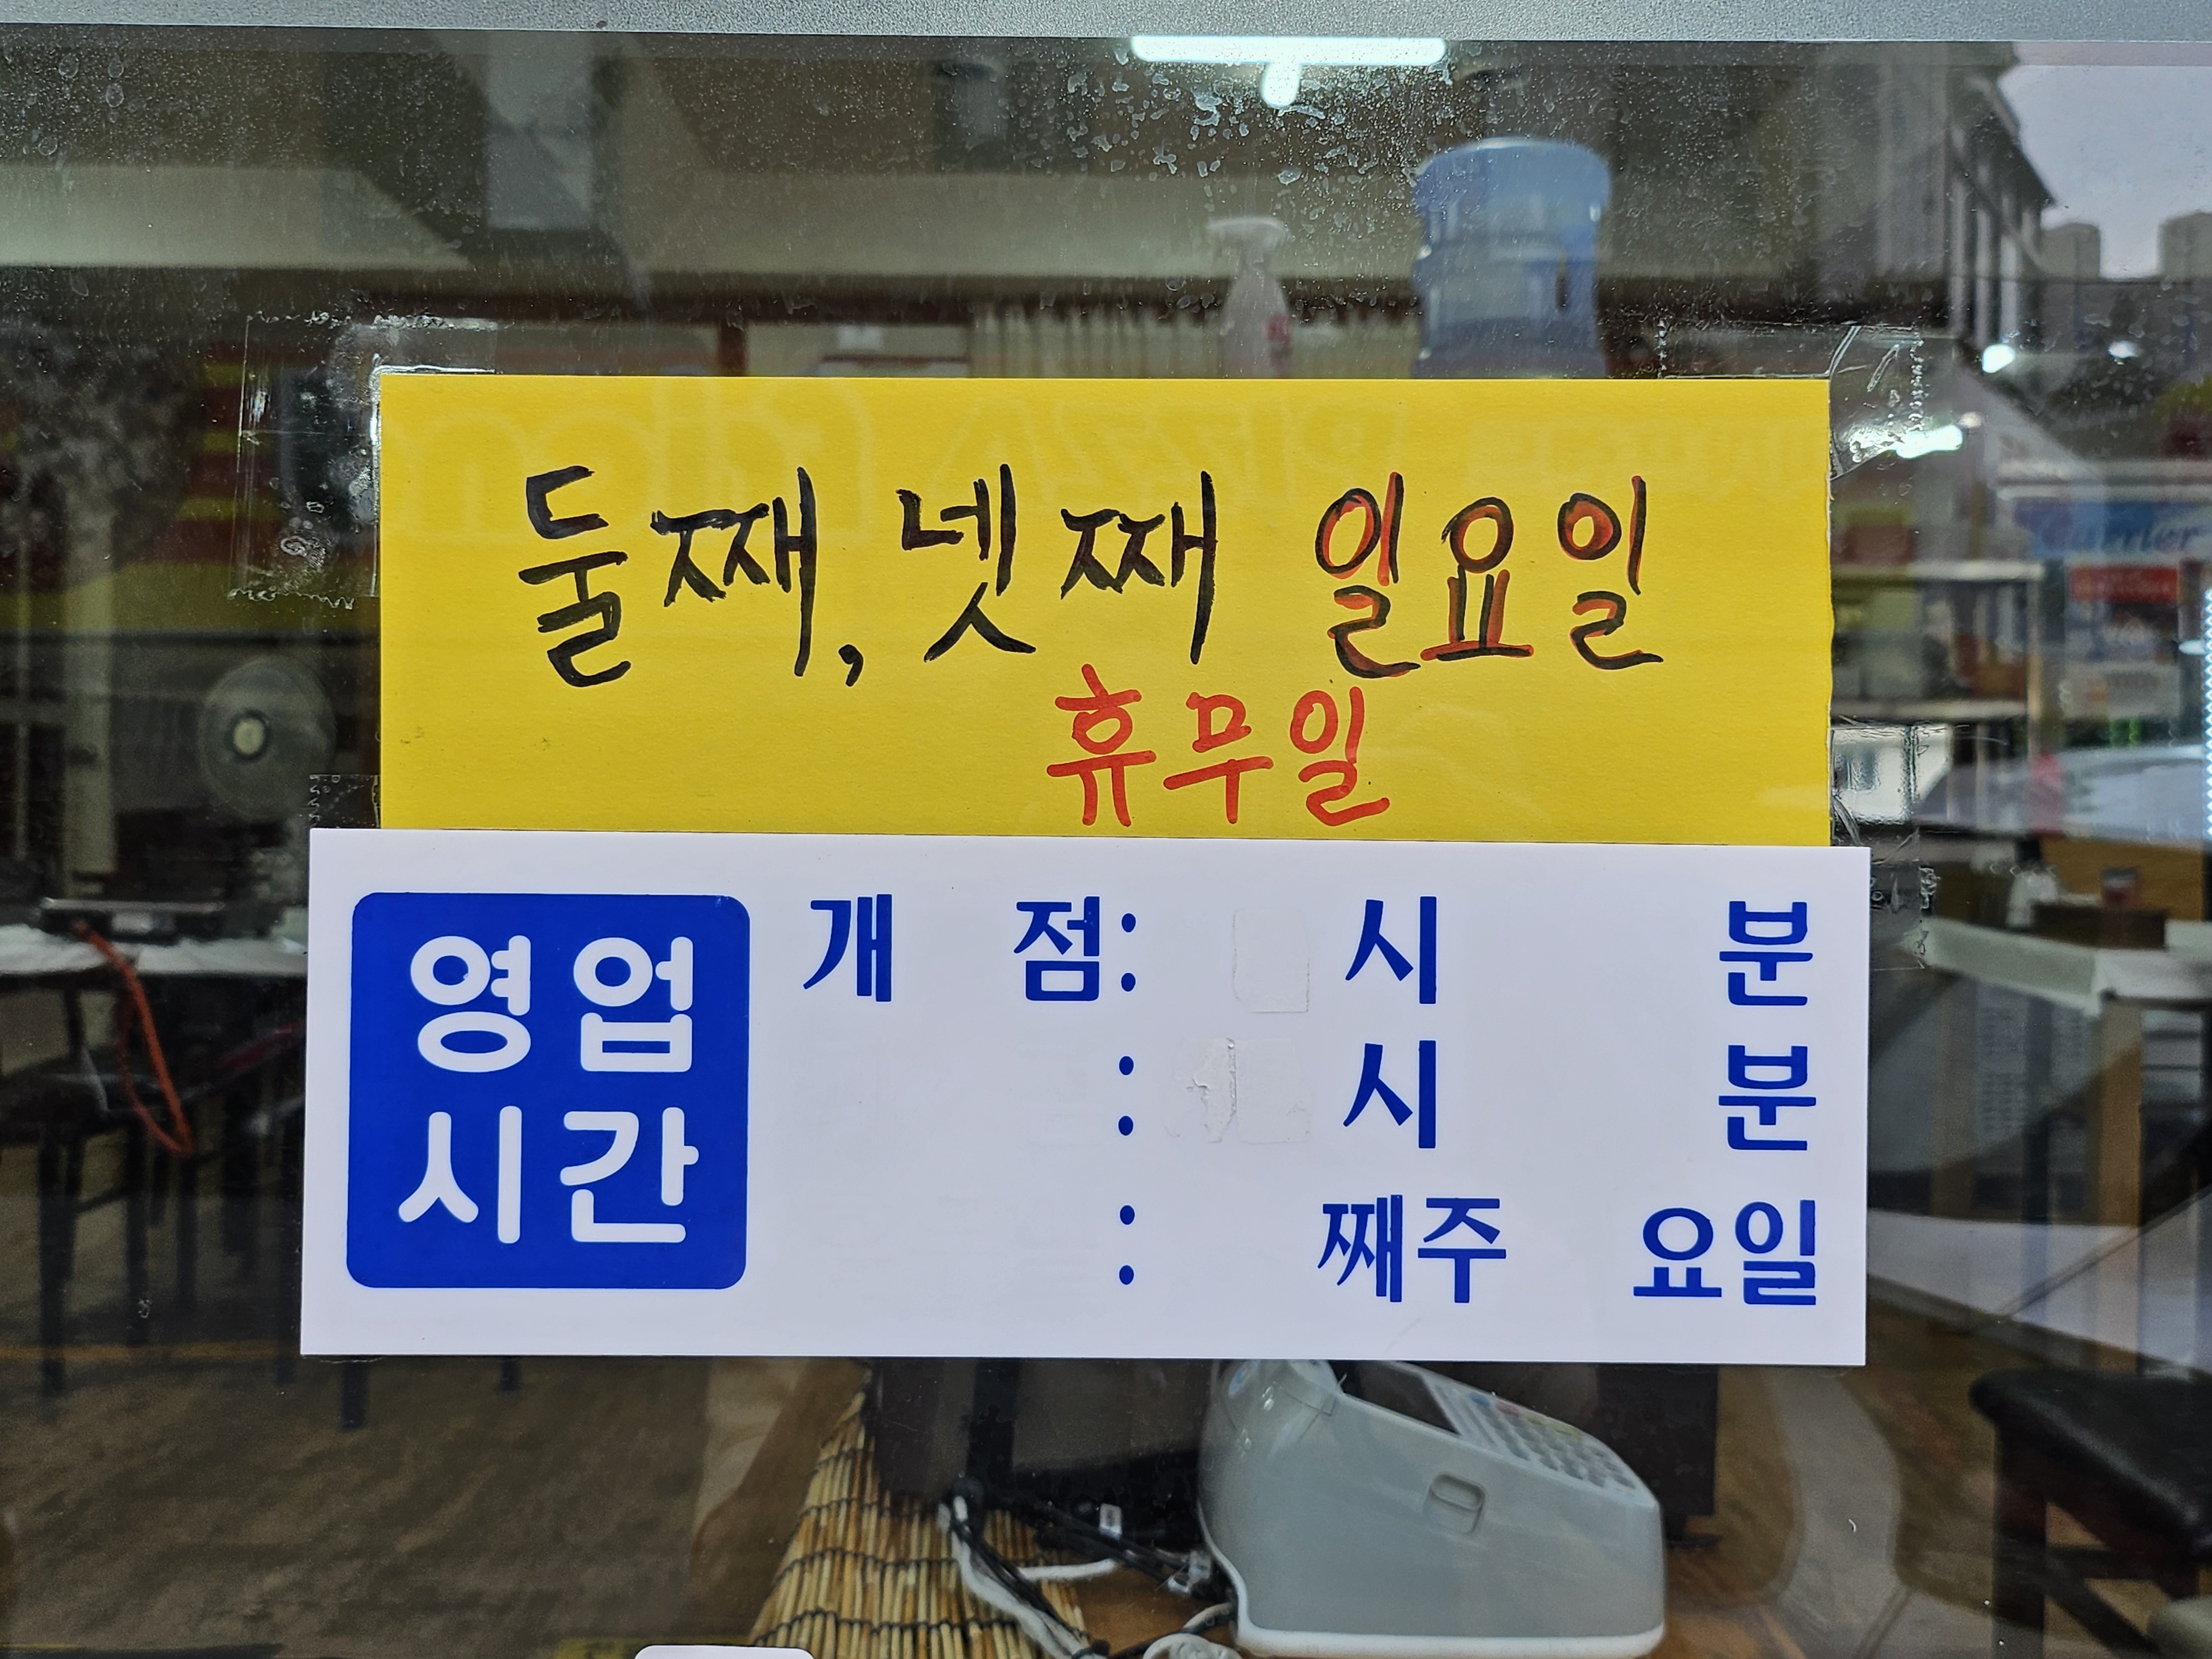 둘째, 넷째 일요일
휴무일
영업
시간
개 점: 시 분
: 시 분
: 째주 요일